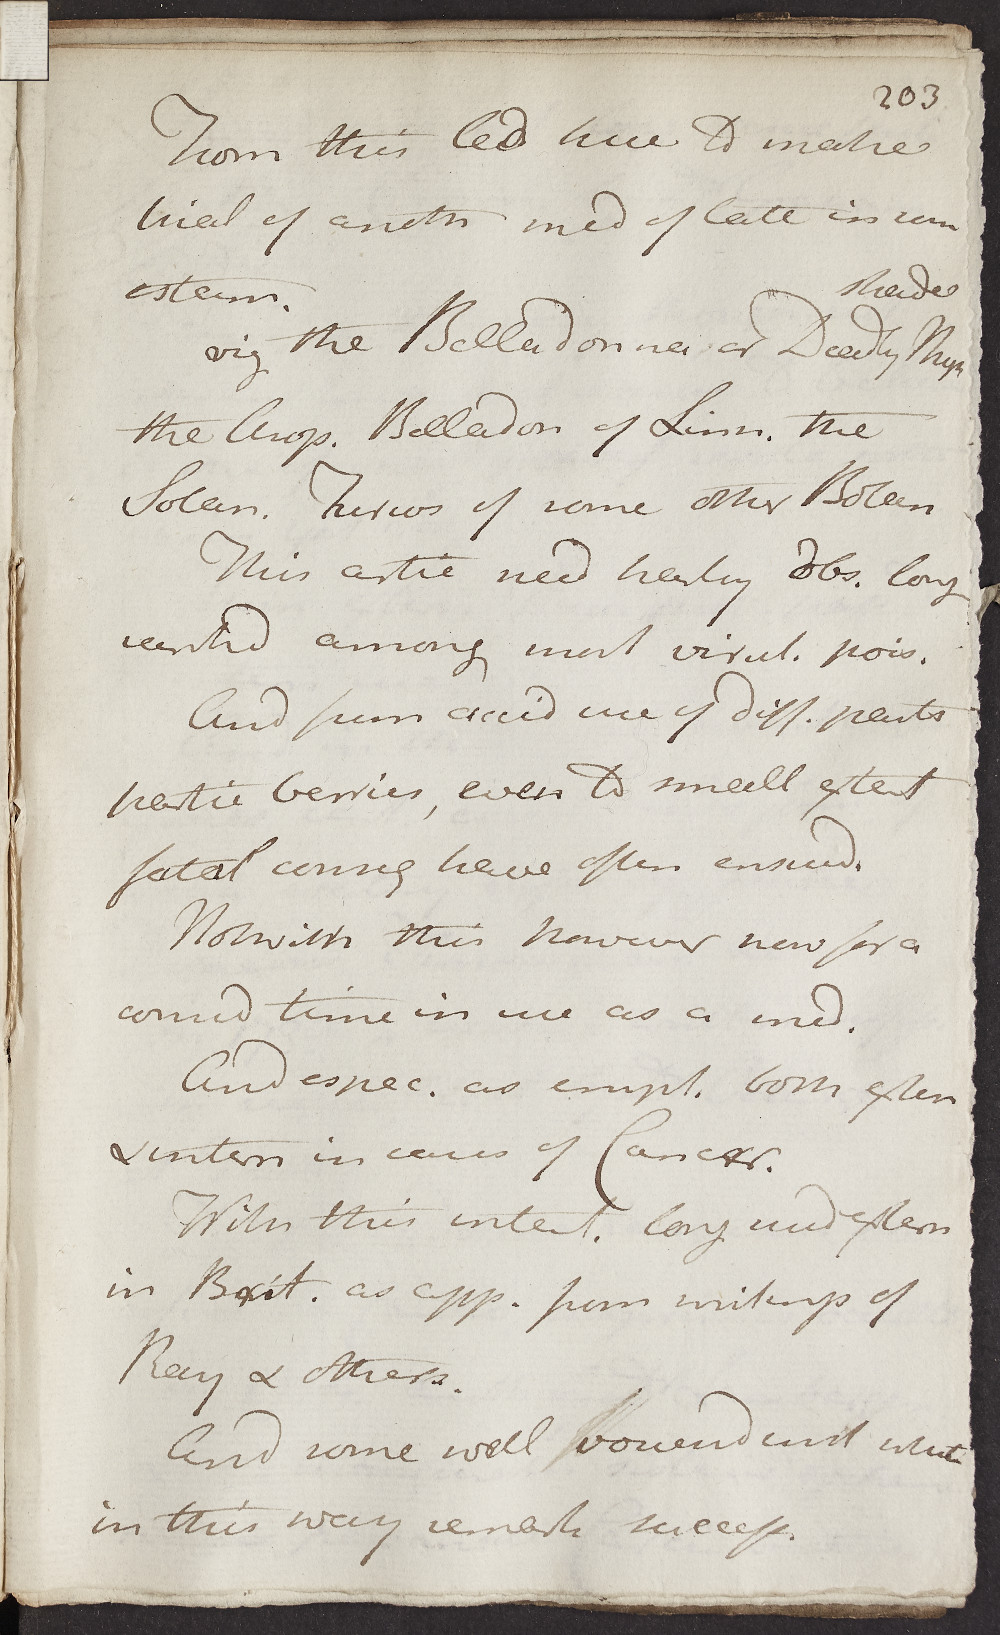 203
From this led here to make
trial of anoth med of late in som
esteem.
shade
viz the Belladonna or Deadly Nigh
the Atrop. Belladon of Linn. the
Solan. Furios of some other Botan
This artic need hardly obs. long
rankd among most virul. pois.
And from accid use of diff. parts
partic berries, even to small extent
fatal conseq have often ensued.
Notwith this however now for a
consid time in use as a med.
And espec. as empl. both extern
& intern in cases of Cancer.
With this intent. long used extern
in Brit. as app. from writings of
Ray & others.
And some well vouched inst where
in this way remark success.